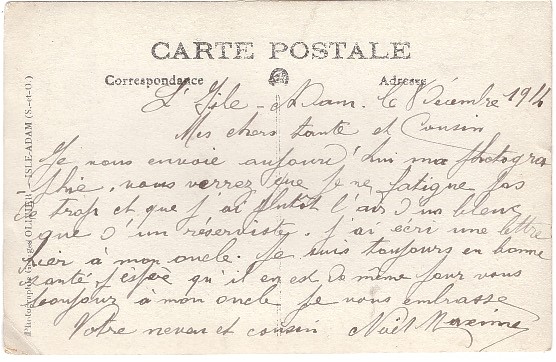 CARTE POSTALE
Correspondance
Adresse
L'Isle-Adam. le 8 Décembre 1914
Mes chers tante et Cousin
Je vous envoie aujourd'hui ma photogra
phie. vous verrez que je ne fatigue pas
trop et que j'ai plutôt l'air d'un bleu
que d'un réserviste. j'ai écri une lettre
hier à mon oncle. Je suis toujours en bonne
santé j'espère qu'il en est de même pour vous
bonjour à mon oncle je vous embrasse
Votre neveu et cousin Noël Maxime
Photographie Georges OLLIVIER — ISLE-ADAM (S.-et-O.)